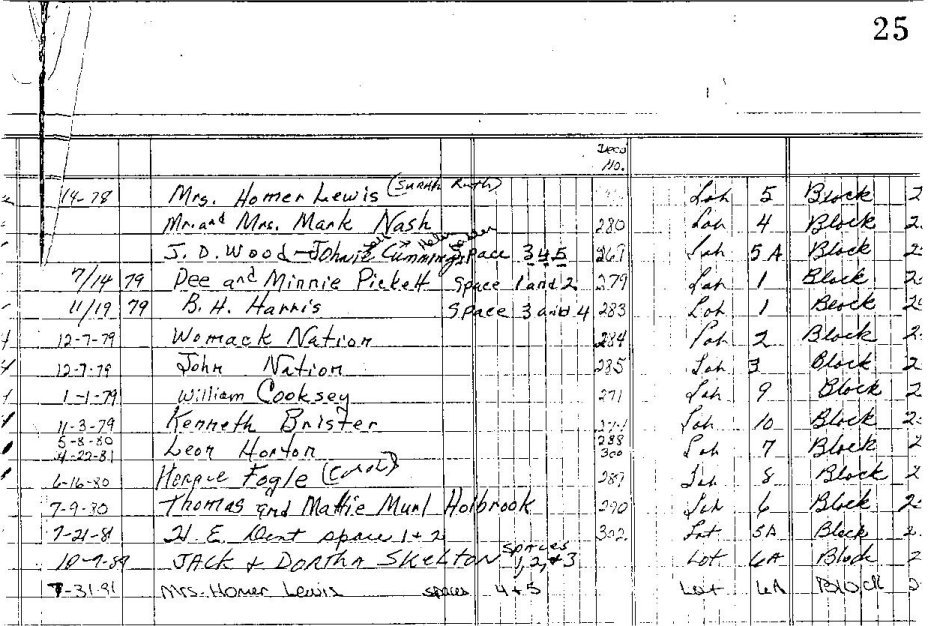 25
Deed
No.
14-78 Mrs. Homer Lewis (Surah Ruth) Lot 5 Block 2
Mr. and Mrs. Mark Nash 280 Lot 4 Block 2
J. D. Wood - Johnie Cummings Space 3 4 5 269 Lot 5A Block 2
7/14 79 Dee and Minnie Pickett Space 1 and 2 279 Lot 1 Block 2
11/19 79 B. H. Harris Space 3 and 4 283 Lot 1 Block 2
12-7-79 Womack Nation 284 Lot 2 Block 2
12-7-79 John Nation 285 Lot 3 Block 2
1-1-79 William Cooksey 271 Lot 9 Block 2
11-3-79 Kenneth Brister Lot 10 Block 2
5-8-80 288
4-22-81 Leon Horton 300 Lot 7 Block 2
6-16-80 Horace Fogle (Carol) 289 Lot 8 Block 2
7-9-80 Thomas and Mattie Murl Holbrook 290 Lot 6 Block 2
7-21-81 H. E. Dent space 1 + 2 302 Lot 5A Block 2
JACK & DORTHA SKELTON spaces 1, 2, + 3 Lot 6A Block 2
7-31-91 Mrs. Homer Lewis spaces 4 + 5 Lot 6A Block